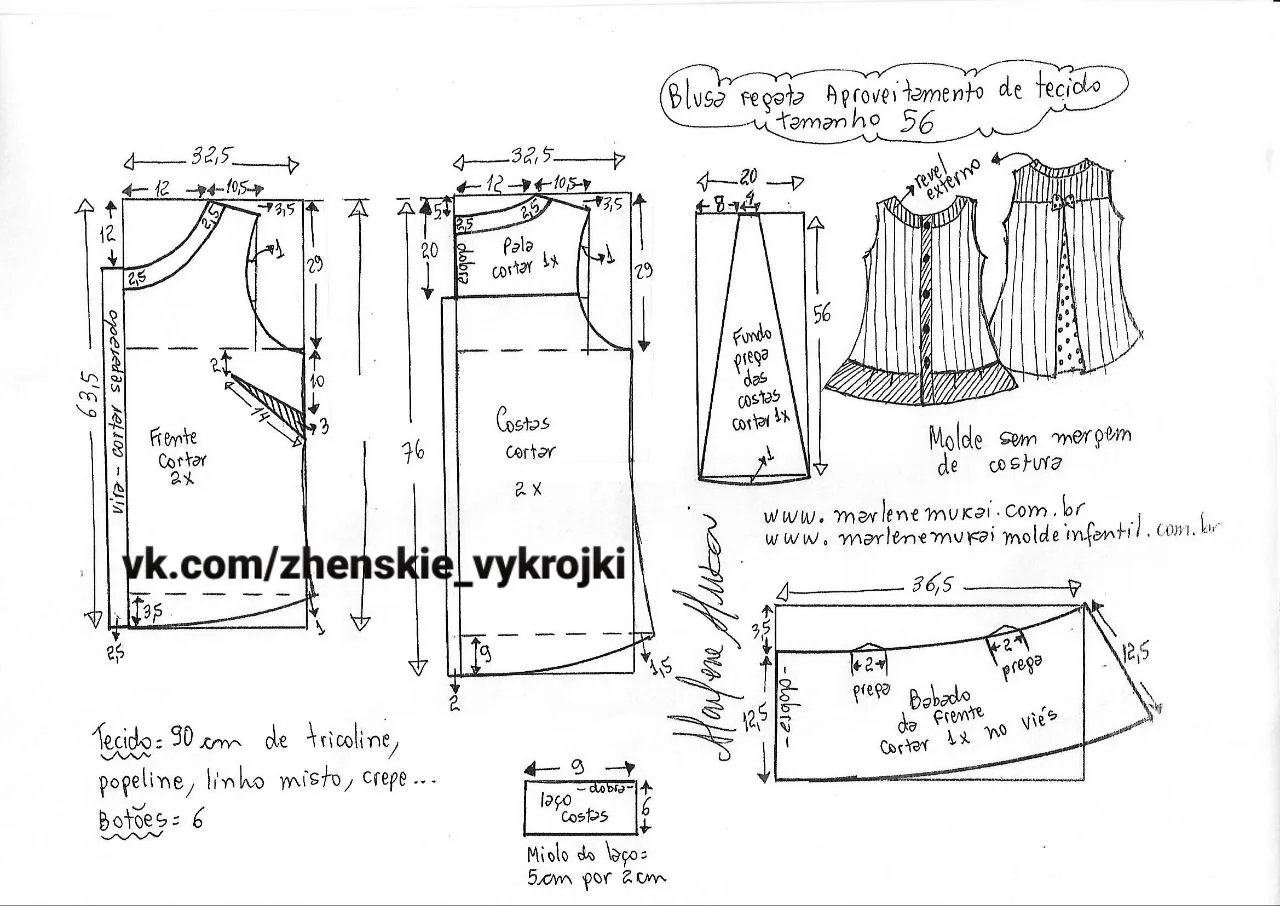 Blusa regata Aproveitamento de tecido
tamanho 56
32,5
12
10,5
3,5
12
2,5
2,5
1
29
63,5
vira - cortar separado
2
10
14
3
Frente
cortar
2x
3,5
2,5
1
32,5
12
10,5
3,5
5
2,5
2,5
20
dobra
Pala
cortar 1x
1
29
76
Costas
cortar
2x
9
2
1,5
20
8
4
56
Fundo
prega
das
costas
cortar 1x
1
revel
externo
Molde sem margem
de costura
www.marlenemukai.com.br
www.marlenemukaimoldeinfantil.com.br
Marlene Mukai
vk.com/zhenskie_vykrojki
36,5
3,5
12,5
- dobra -
2
prega
2
prega
12,5
Babado
da frente
cortar 1x no viés
Tecido= 90 cm de tricoline,
popeline, linho misto, crepe...
Botões= 6
9
- dobra -
laço
costas
6
Miolo do laço=
5cm por 2cm